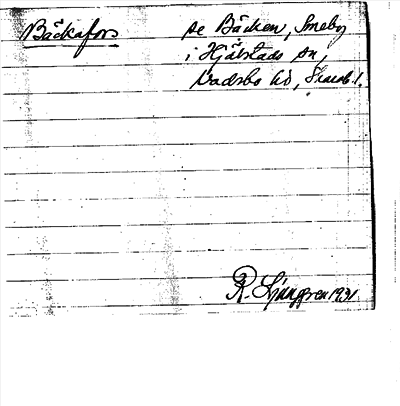 Bäckafors
se Bäcken, Smeby
i Hjälstads sn,
Vadsbo hd, Skarab. l.
R. Ljunggren 1931